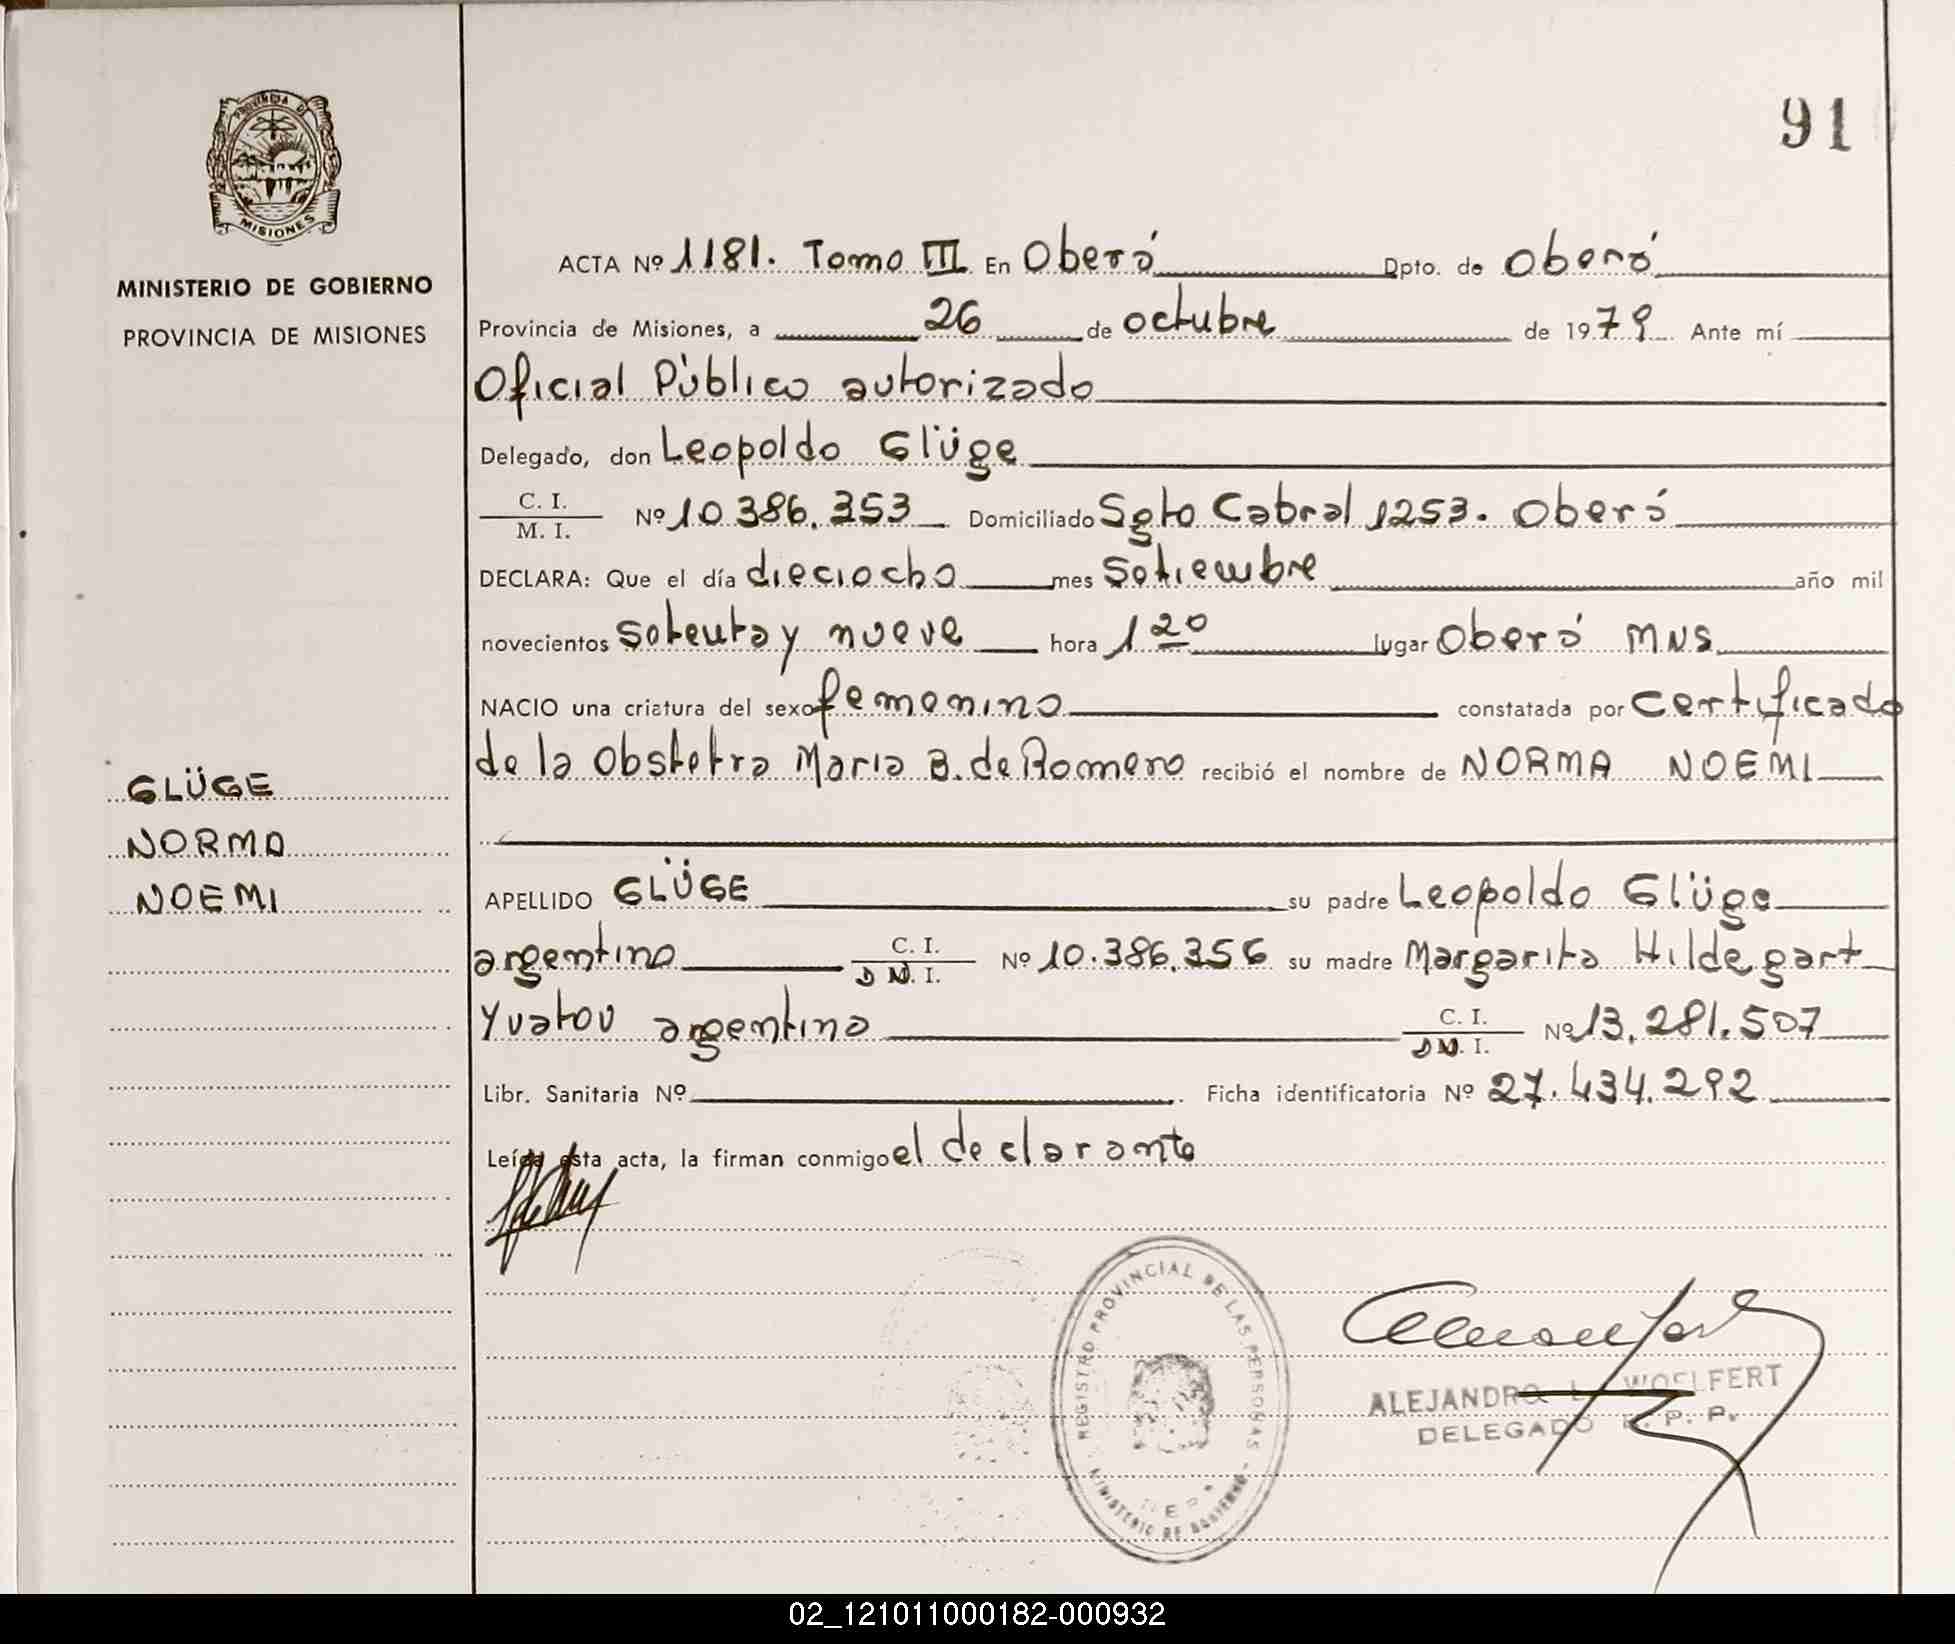 91
PROVINCIA DE
MISIONES
MINISTERIO DE GOBIERNO
PROVINCIA DE MISIONES
GLÜGE
NORMA
NOEMI
ACTA Nº 1181. Tomo III En Oberá Dpto. de Oberá
Provincia de Misiones, a 26 de octubre de 1979 Ante mí
Oficial Público autorizado
Delegado, don Leopoldo Glüge
C. I.
M. I. Nº 10.386.353 Domiciliado Sgto Cabral 1253. Oberá
DECLARA: Que el día dieciocho mes Setiembre año mil
novecientos setenta y nueve hora 1 20 lugar Oberá Mns
NACIO una criatura del sexo femenino constatada por certificado
de la Obstetra Maria B. de Romero recibió el nombre de NORMA NOEMI
APELLIDO GLÜGE su padre Leopoldo Glüge
argentino C. I.
D N. I. Nº 10.386.356 su madre Margarita Hildegart
Yvatov argentina C. I.
DN. I. Nº 13.281.507
Libr. Sanitaria Nº Ficha identificatoria Nº 27.434.292
Leída esta acta, la firman conmigo el declarante
REGISTRO PROVINCIAL DE LAS PERSONAS - MINISTERIO DE GOBIERNO
ALEJANDRO L. WOELFERT
DELEGADO R. P. P.
02_121011000182-000932